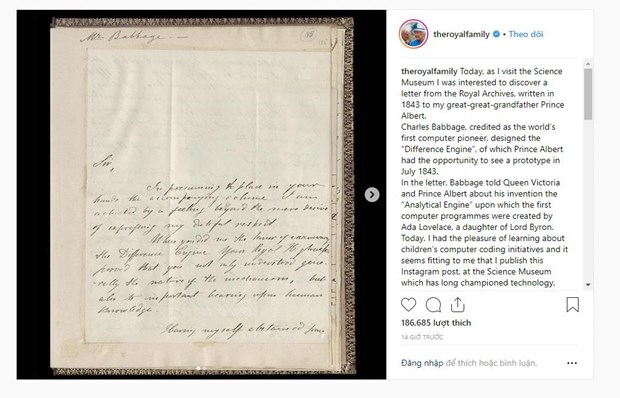 Mr Babbage. —
Sir,
In presuming to place in your
hands the accompanying volume I am
actuated by a feeling beyond the mere desire
of expressing my dutiful respect
When you did me the honor of examining
the Difference Engine Your Royal Highness
proved that you not only understood gene-
rally the nature of the mechanism, but
also its important bearing upon human
knowledge.
Having myself abstained from
theroyalfamily • Theo dõi
theroyalfamily Today, as I visit the Science
Museum I was interested to discover a
letter from the Royal Archives, written in
1843 to my great-great-grandfather Prince
Albert.
Charles Babbage, credited as the world's
first computer pioneer, designed the
"Difference Engine", of which Prince Albert
had the opportunity to see a prototype in
July 1843.
In the letter, Babbage told Queen Victoria
and Prince Albert about his invention the
"Analytical Engine" upon which the first
computer programmes were created by
Ada Lovelace, a daughter of Lord Byron.
Today, I had the pleasure of learning about
children's computer coding initiatives and it
seems fitting to me that I publish this
Instagram post, at the Science Museum
which has long championed technology,
186,685 lượt thích
14 GIỜ TRƯỚC
Đăng nhập để thích hoặc bình luận.